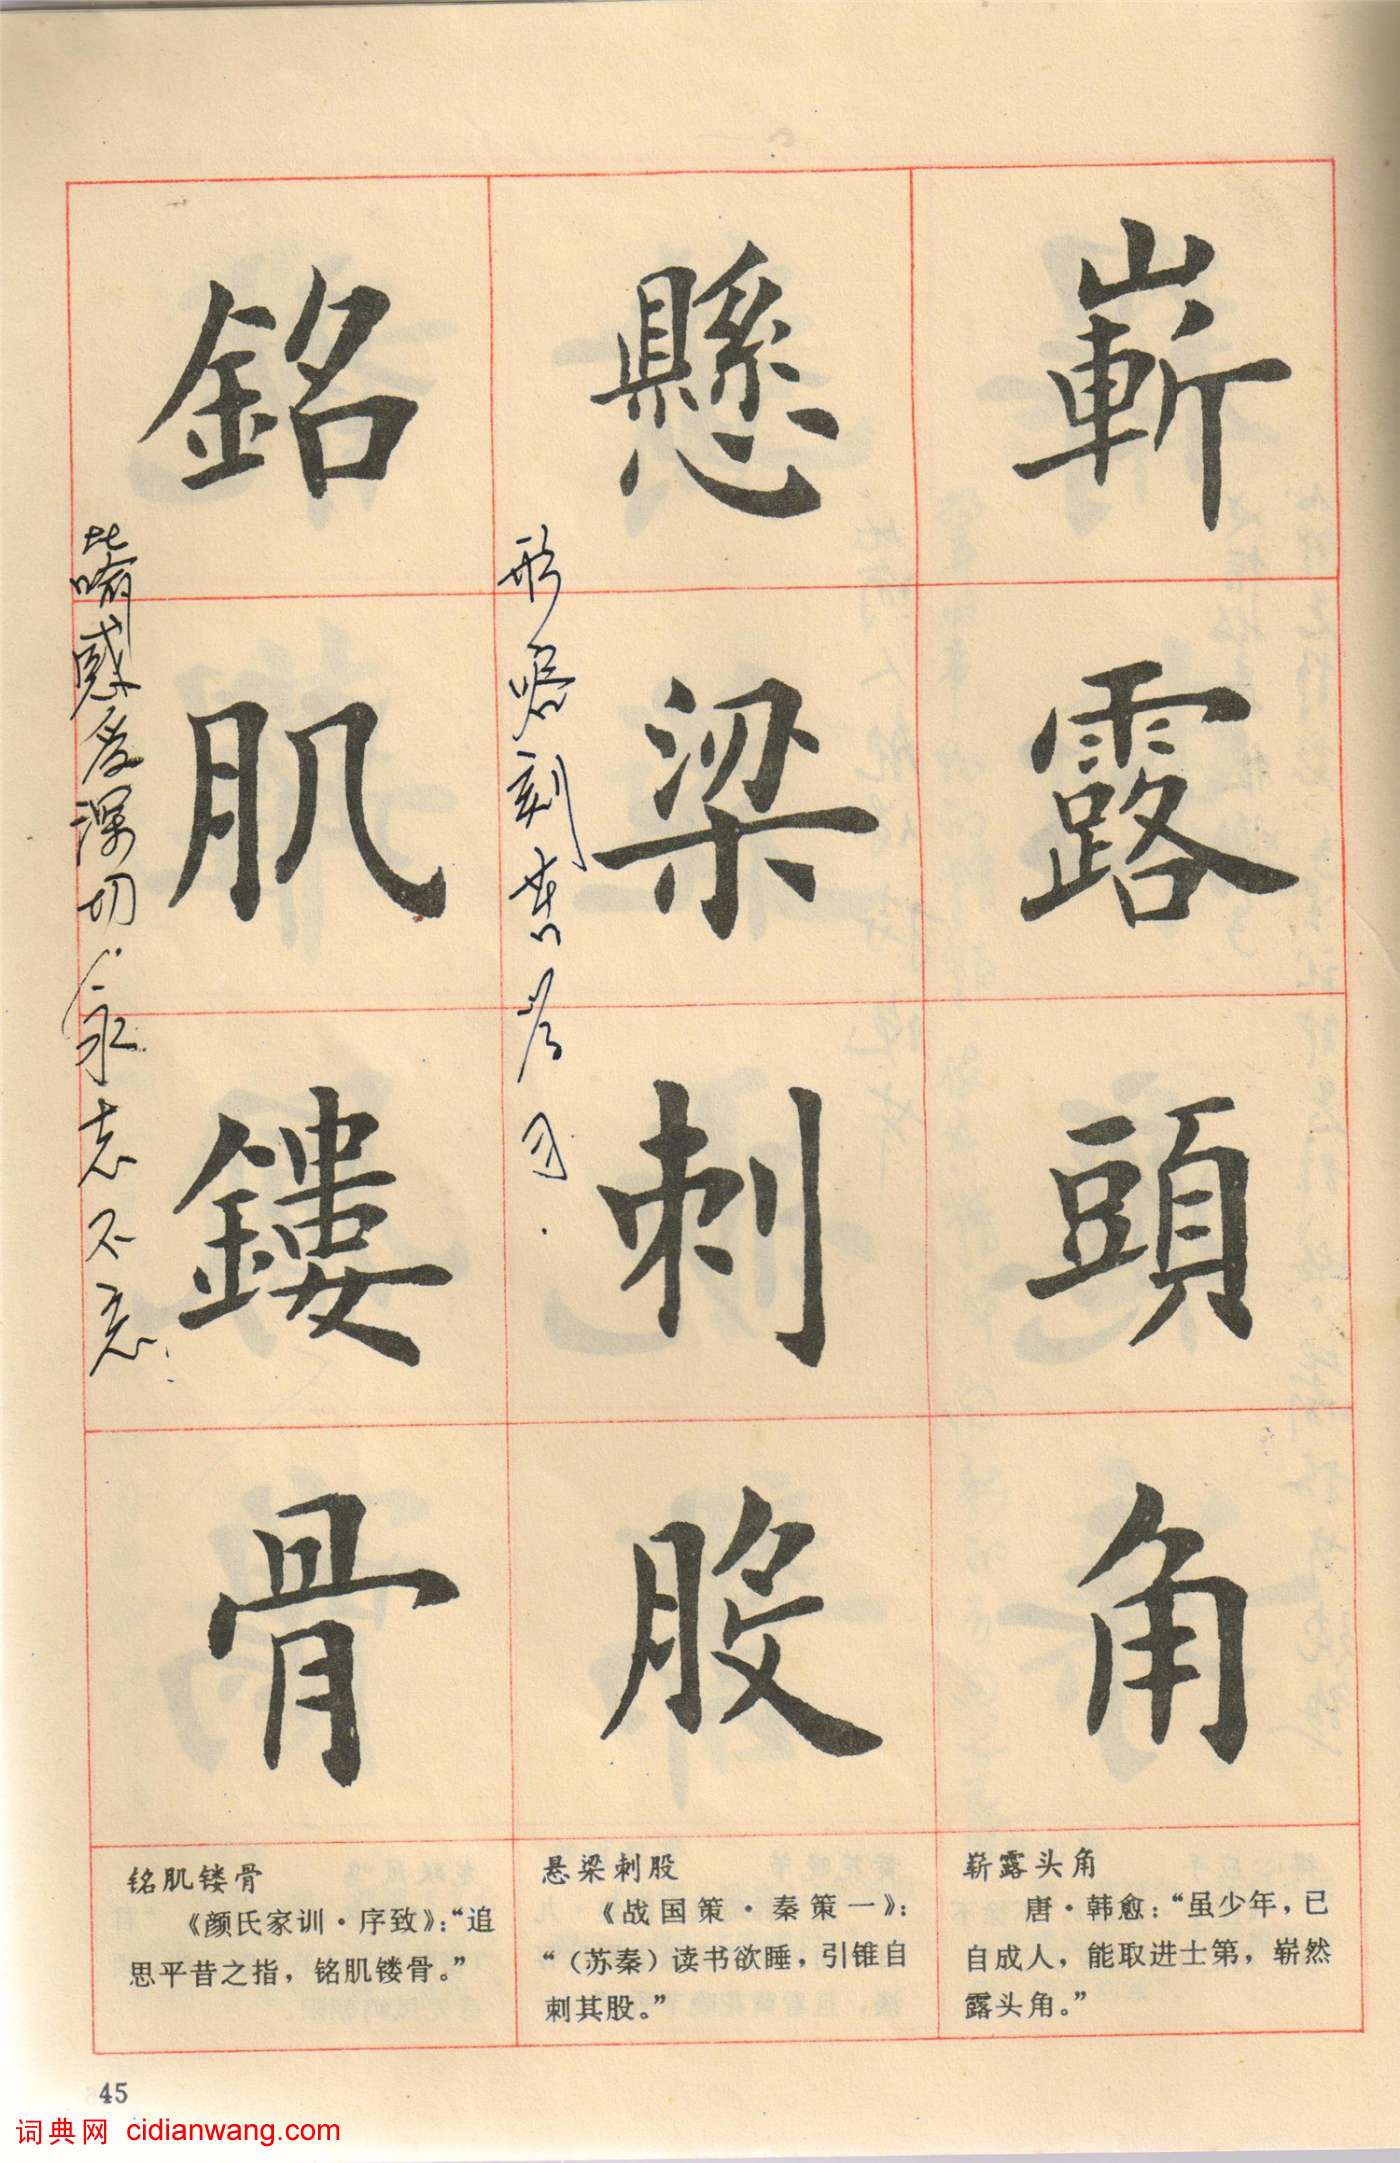 嶄露頭角
懸梁刺股
形容刻苦学习.
銘肌鏤骨
比喻感受深切，永志不忘.
崭露头角
唐·韩愈：“虽少年，已
自成人，能取进士第，崭然
露头角。”
悬梁刺股
《战国策·秦策一》：
“（苏秦）读书欲睡，引锥自
刺其股。”
铭肌镂骨
《颜氏家训·序致》：“追
思平昔之指，铭肌镂骨。”
45
词典网 cidianwang.com